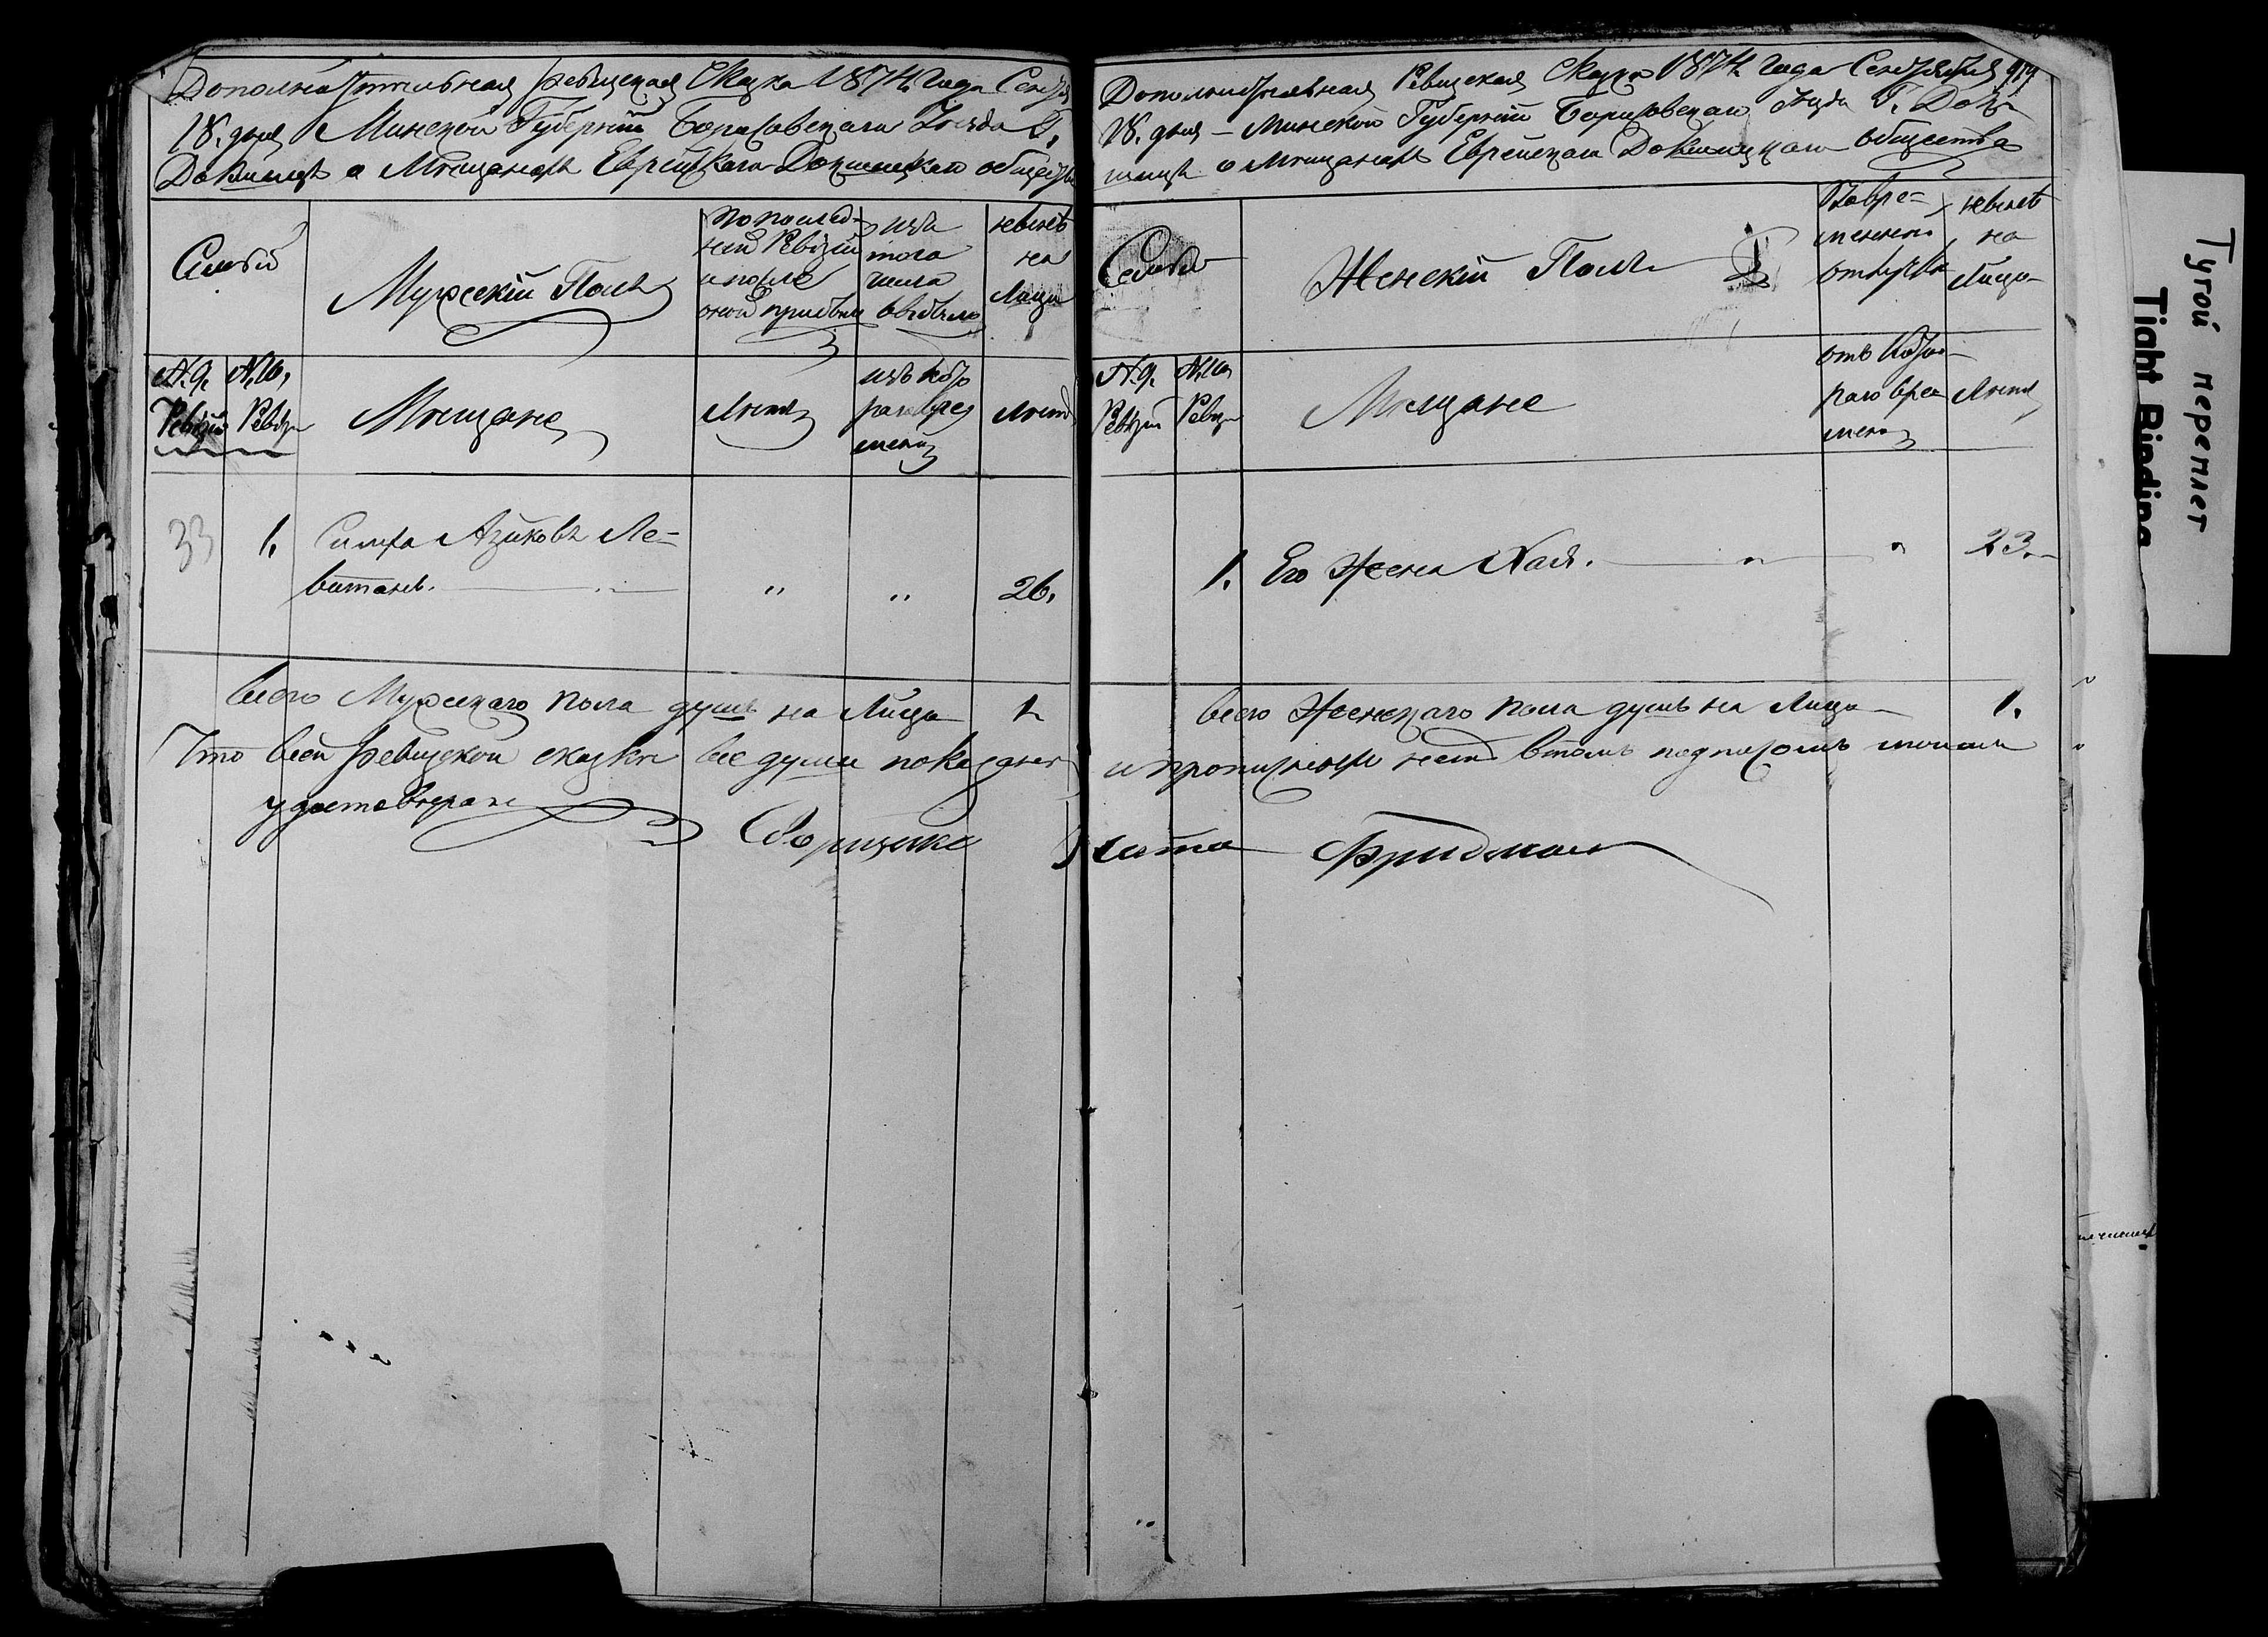 Дополнительная ревизская Сказка 1874 Года Сентя
18. дня Минской Губерніи Борисовскаго Уѣзда Г.
Докшицъ о Мѣщанахъ Еврейскаго Докшицкаго общества
Семьи
Мужскій Полъ
по послед-
ней Ревизіи
и после
оной прибыли
изъ
того
числа
выбыло
ныне
на
Лицо
№ 9. № 10,
Ревизіи Ревиз
Мещане
Лета
изъ кото
раго вре
мени
Лета
33 1. Симха Айзиковъ Ле-
витанъ. " " 26.
всего Мужескаго пола душъ на Лицо 1
Что всей ревизской сказки все души показаны
удостоверяю
Сборщикъ
Дополнительная Ревизская Сказка 1874 Года Сентября 919
18. дня – Минской Губерніи Борисовскаго Уезда Г. Док
шицъ о Мещанахъ Еврейскаго Докшицкаго общества
Семьи
Женскій Полъ
Во вре-
менной
отлучке
ныне
на
Лицо
№ 9. № 10
Ревизіи Ревиз
Мещане
отъ Кото-
раго вре
мени
Лета
1. Его Жена Хая. " " 23.
всего Женскаго пола душъ на Лицо 1.
и прописныхъ нетъ въ томъ подписомъ моимъ
Фридман
Тугой переплет
Tight Binding